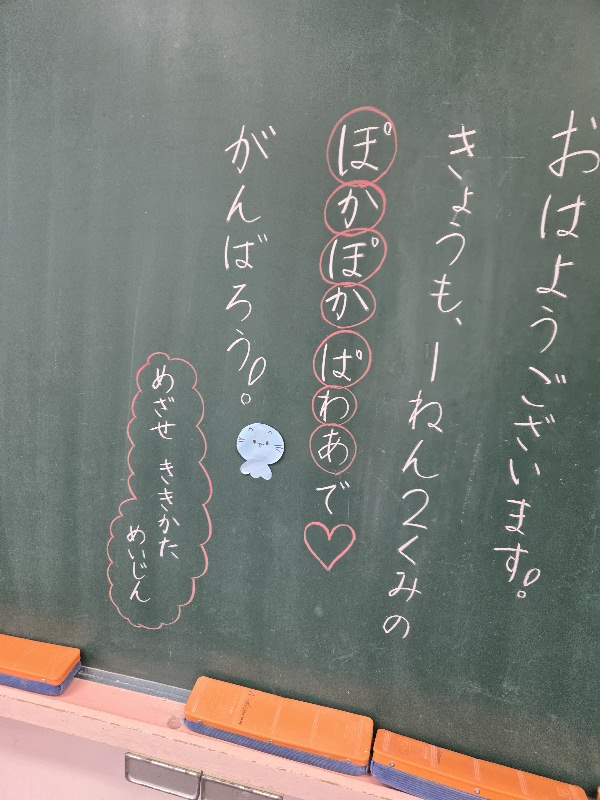 おはようございます!。
きょうも、1ねん2くみの
ぽかぽかぱわあで♡
がんばろう!。
めざせ ききかた、
めいじん